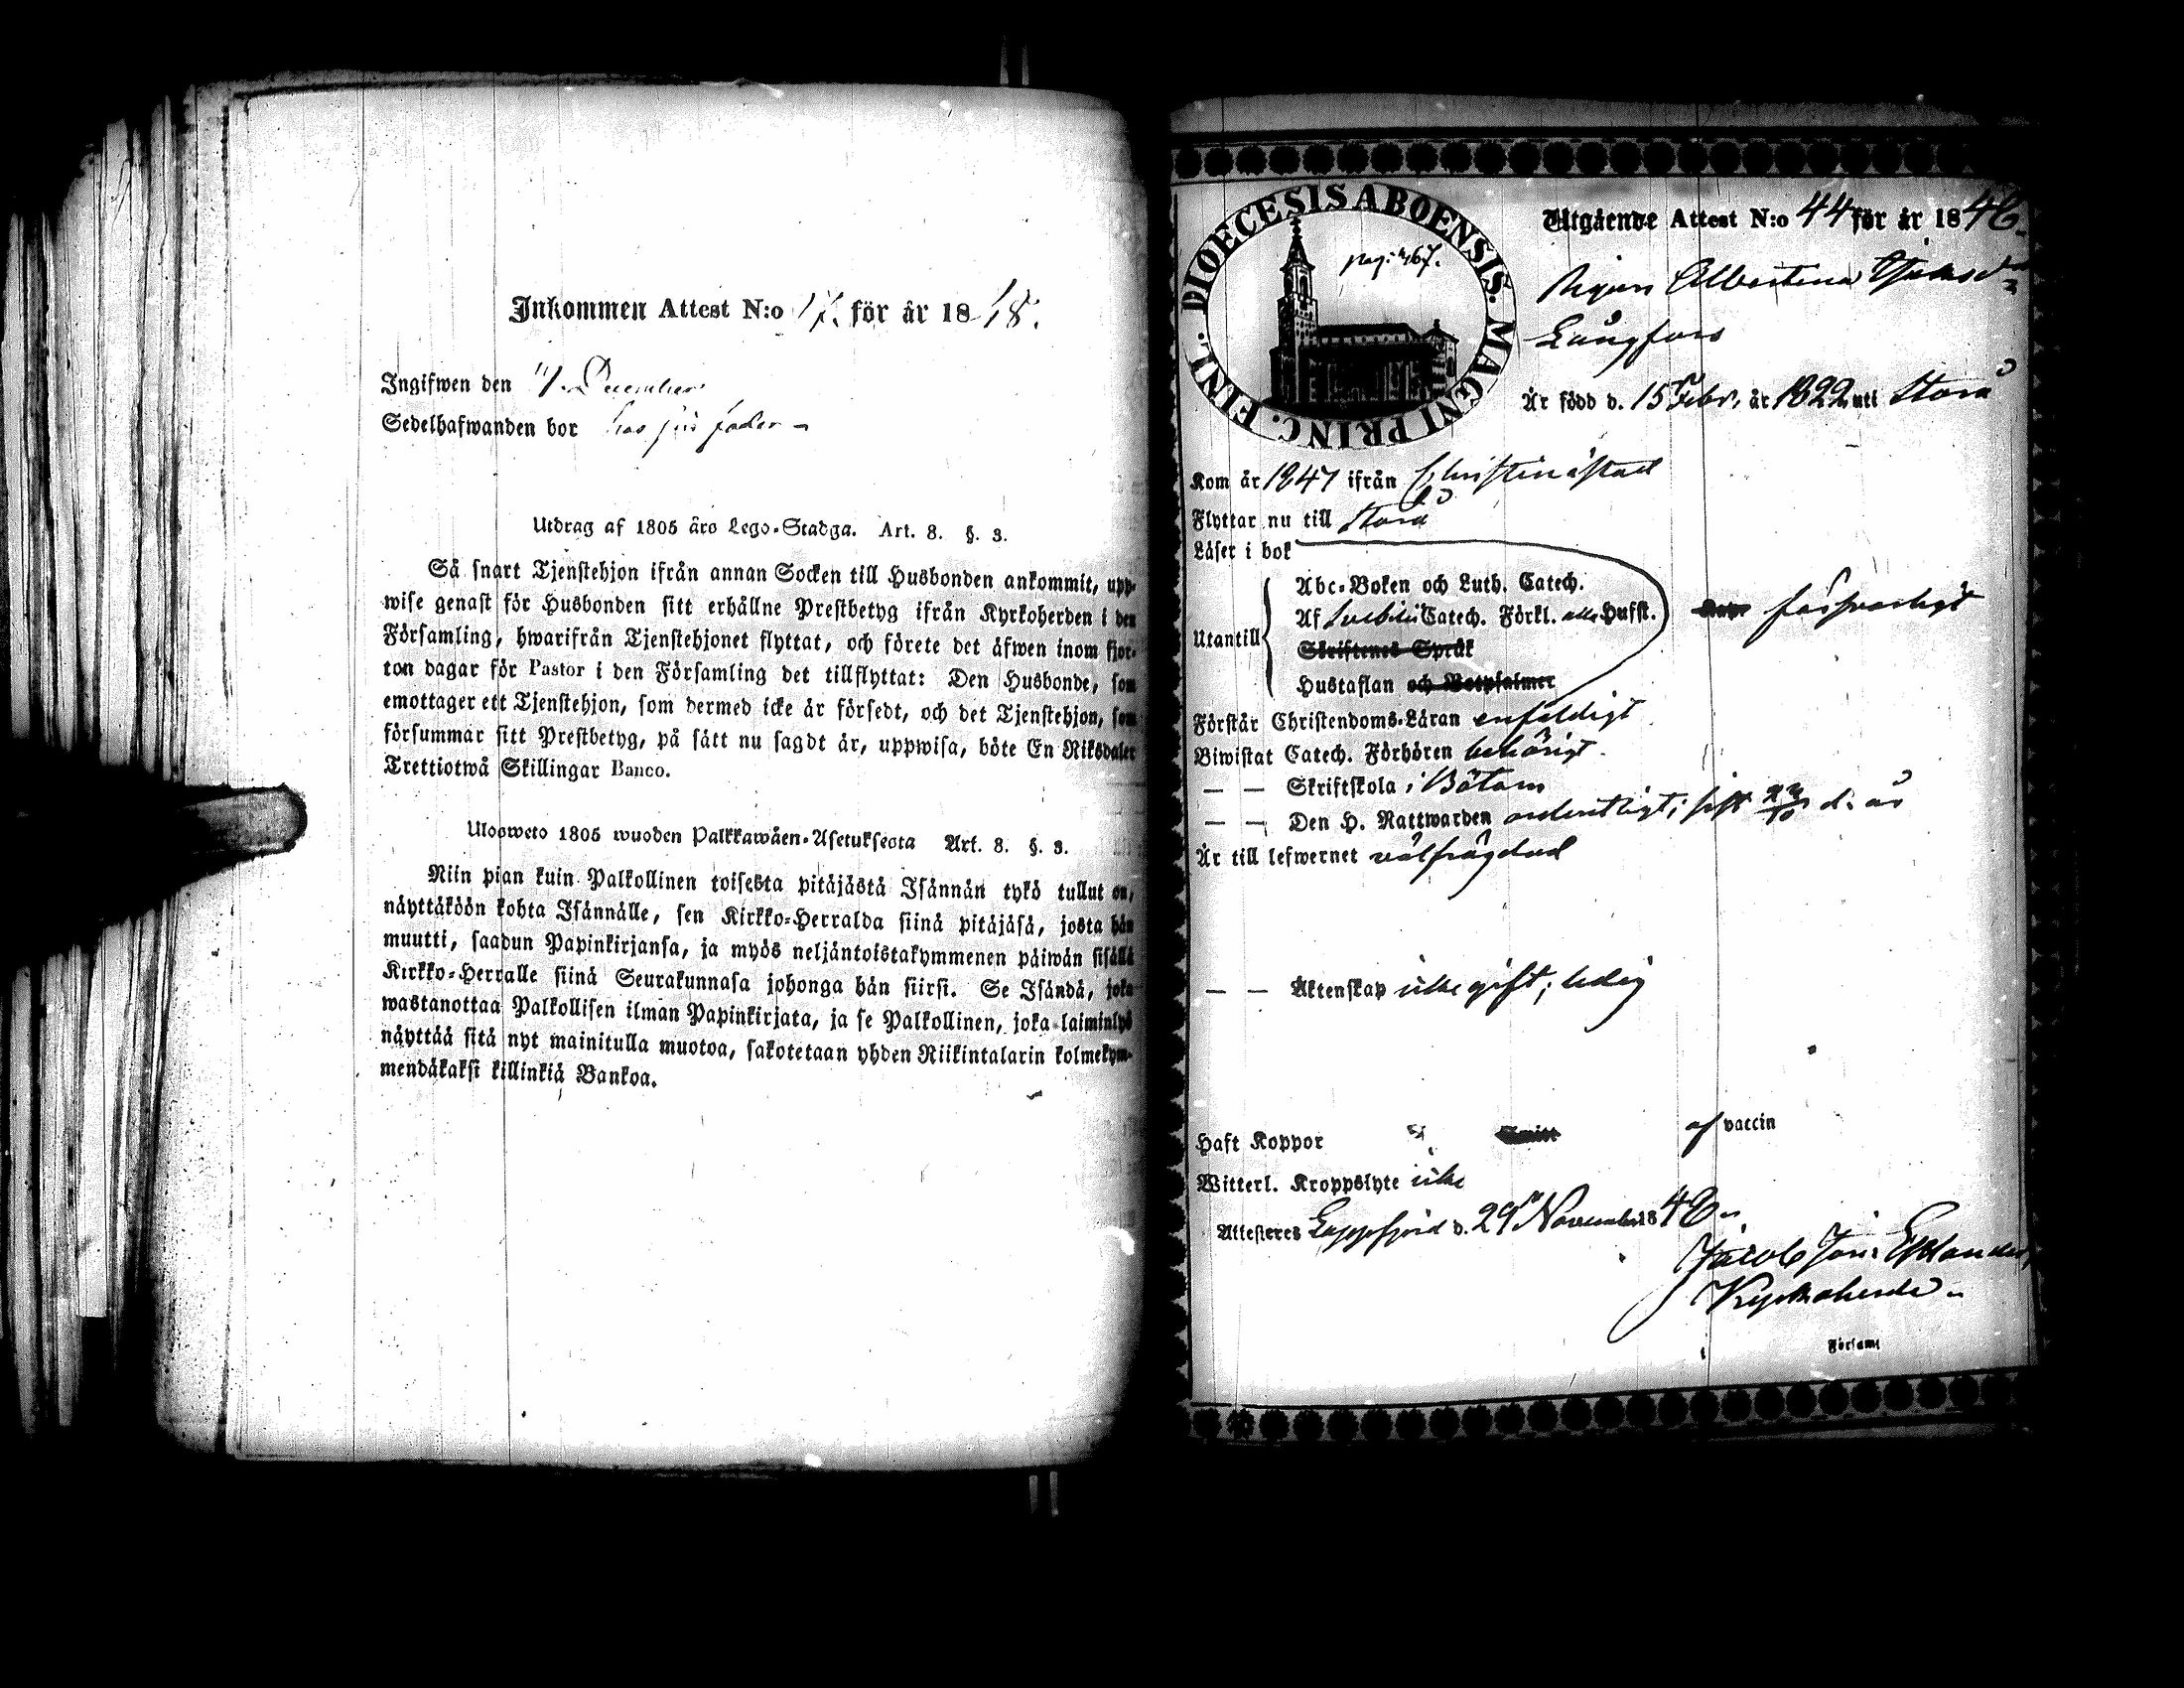 Inkommen Attest N:o 17. för år 1848.
Ingifwen den 11/12 December
Sedelhafwanden bor hos sin fader –
Utdrag af 1805 års Lego-Stadga. Art. 8. §. 3.
Så snart Tjenstehjon ifrån annan Socken till Husbonden ankommit, upp-
wise genast för Husbonden sitt erhållne Prestbetyg ifrån Kyrkoherden i den
Församling, hwarifrån Tjenstehjonet flyttat, och förete det äfwen inom fjor-
ton dagar för Pastor i den Församling det tillflyttat: Den Husbonde, som
emottager ett Tjenstehjon, som dermed icke är försedt, och det Tjenstehjon, som
försummar sitt Prestbetyg, på sätt nu sagdt är, uppwisa, böte En Riksdaler
Trettiotwå Skillingar Banco.
Ulosweto 1805 wuoden Palkkawäen-Asetuksesta Art. 8. §. 3.
Niin pian kuin Palkollinen toisesta pitäjästä Isännän tykö tullut on,
näyttäköön kohta Isännälle, sen Kirkko-Herralda siinä pitäjäsä, josta hän
muutti, saadun Papinkirjansa, ja myös neljäntoistakymmenen päiwän sisällä
Kirkko-Herralle siinä Seurakunnasa johonga hän siirsi. Se Isändä, joka
wastanottaa Palkollisen ilman Papinkirjata, ja se Palkollinen, joka laiminlyö
näyttää sitä nyt mainitulla muotoa, sakotetaan yhden Riikintalarin kolmekym-
mendäkaksi killinkiä Bankoa.
DIOECESIS ABOENSIS. MAGNI PRINC. FINL.
pag: 467.
Utgående Attest N:o 44 för år 1848.
Pigan Albertina
Långfors
Är född d. 15 Febr. år 1822 uti Storå
Kom år 1847 ifrån Christinästad
Flyttar nu till Storå
Läser i bok
Utantill
Abc-Boken och Luth. Catech.
Af Svebilii Catech. Förkl. alla Hufst. försvarligt
Skriftenes Språk
Hustaflan och Botpsalmer
Förstår Christendoms-Läran enfaldigt
Biwistat Catech. Förhören behörigt.
— — Skriftskola i Bötom
— — Den H. Nattwarden ordentligt; sist d: år
Är till lefwernet välfrägdad
— — Äktenskap icke gift; ledig
Haft Koppor af vaccin
Witterl. Kroppslyte icke
Attesteres Lappfjerd d. 29 November 1848.
Jacob Jon:
Kyrkoherde
Församl